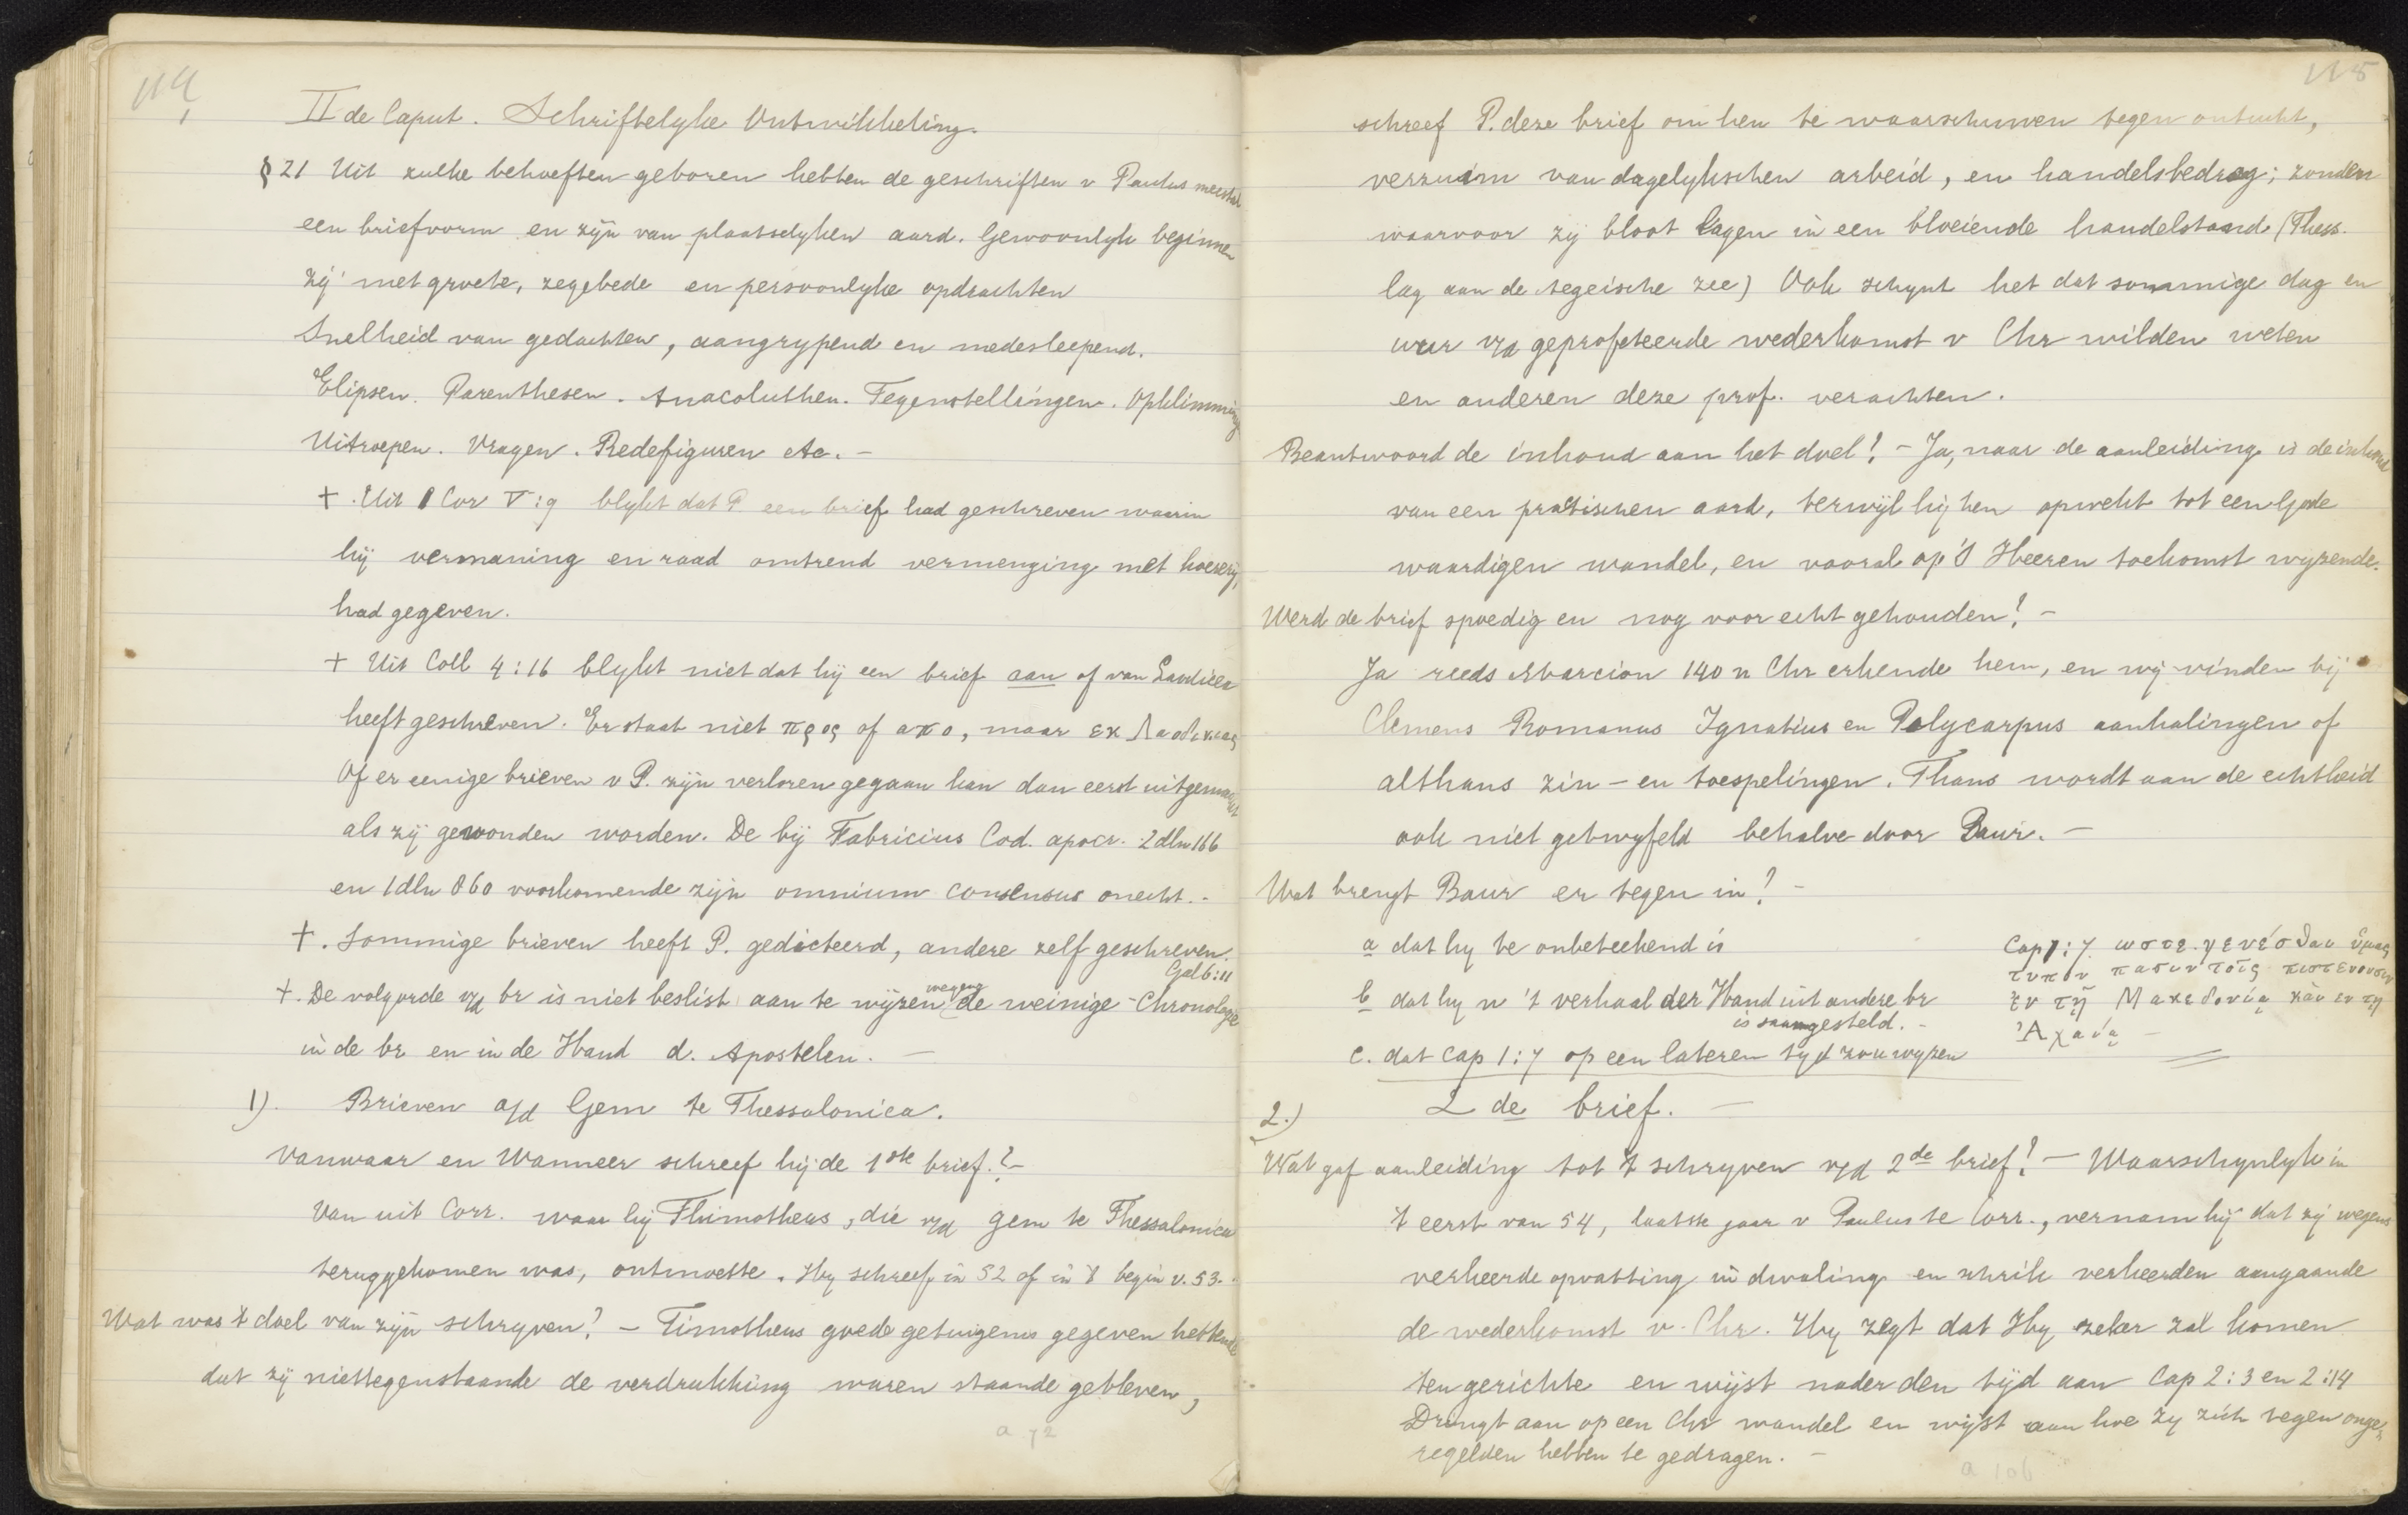 114
II de Caput. Schriftelyke Ontwikkeling.
§ 21 Uit zulke behoeften geboren hebben de geschriften v Paulus meestal
een briefvorm en zijn van plaatselyken aard. Gewoonlyk beginnen
zij met groete, zegebede en persoonlyke opdrachten
Snelheid van gedachten, aangrypend en medesleepend.
Elipsen. Parenthesen. Anacoluthen. Tegenstellingen. Opklimming
Uitroepen. Vragen. Redefiguren etc. –
+ . Uit 1 Cor V:9 blykt dat P een brief had geschreven waarin
hij vermaning en raad omtrend vermenging met hoerery,
had gegeven.
+ Uit Coll 4:16 blykt niet dat hij een brief aan of van Laodicea
heeft geschreven. Er staat niet προς of απο, maar εκ Λαοδικιας
Of er eenige brieven v P. zijn verloren gegaan kan dan eerst uitgemaakt
als zij gewonden worden. De bij Fabricius Cod. apocr. 2 dln 166
en 1 dln 860 voorkomende zijn omnium consensus onecht. –
+. Sommige brieven heeft P. gedicteerd, andere zelf geschreven.
Gal 6:11
+. De volgorde v/d br is niet beslist aan te wijzen wegens de weinige – Chronologie
in de br en in de Hand d. Apostelen. –
1). Brieven a/d Gem te Thessalonica.
Vanwaar en Wanneer schreef hij de 1ste brief.? –
Van uit Corr. waar hij Thimotheus, die v/d gem te Thessalonica
teruggekomen was, ontmoette. Hy schreef in 52 of in 't begin v. 53.
Wat was 't doel van zijn schryven? – Timotheus goede getuigenis gegeven hebbende
dat zij niettegenstaande de verdrukking waren staande gebleven,
a 72
115
schreef P. deze brief om hen te waarschuwen tegen ontucht,
verzuim van dagelykschen arbeid, en handelsbedrog; zonden
waarvoor zij bloot lagen in een bloeiende handelstand (Thess.
lag aan de Aegeische zee) Ook schynt het dat sommige dag en
uur v/d geprofeteerde wederkomst v Chr wilden weten
en anderen deze prof. verachten.
Beantwoord de inhoud aan het doel? – Ja, naar de aanleiding is de inhoud
van een practischen aard, terwijl hij hen opwekt tot een Gode
waardigen wandel, en vooral op 's Heeren toekomst wyzende.
Werd de brief spoedig en nog voor echt gehouden? –
Ja reeds Marcion 140 n Chr erkende hem, en wij vinden bij
Clemens Romanus Ignatius en Polycarpus aanhalingen of
althans zin – en toespelingen. Thans wordt aan de echtheid
ook niet getwyfeld behalve door Baur. –
Wat brengt Baur er tegen in? –
a dat hy te onbeteekend is
b dat hy n 't verhaal der Hand uit andere br
is saamgesteld. –
c. dat Cap 1:7 op een lateren tyd zou wyzen
Cap 1:7 ωστε γενέσθαι ὑμας
τυπον πασιν τοῖς πιστευουσιν
εν τῇ Μακεδονίᾳ κὰι εν τῃ
Ἀχαίᾳ –
2.) 2 de brief. –
Wat gaf aanleiding tot 't schryven v/d 2de brief? – Waarschynlyk in
't eerst van 54, laatste jaar v Paulus te Corr., vernam hij dat zij wegens
verkeerde opvatting in dwaling en schrik verkeerden aangaande
de wederkomst v. Chr. Hy zegt dat Hy zeker zal komen
ten gerichte en wijst nader den tijd aan Cap 2:3 en 2:14
Dringt aan op een Chr wandel en wijst aan hoe zy zich tegen onge-
regelden hebben te gedragen. –
a 106